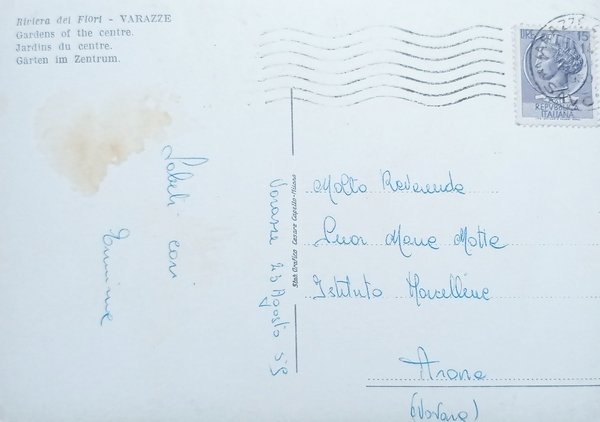 Riviera dei Fiori - VARAZZE
Gardens of the centre.
Jardins du centre.
Gärten im Zentrum.
LIRE 15
REPVBBLICA
ITALIANA
Saluti cari
Varazze 25 Agosto 59
Stab Grafico Cesare Capello-Milano
Molto Reverenda
Suor Maria Motta
Istituto Marcelline
Arona
(Novara)